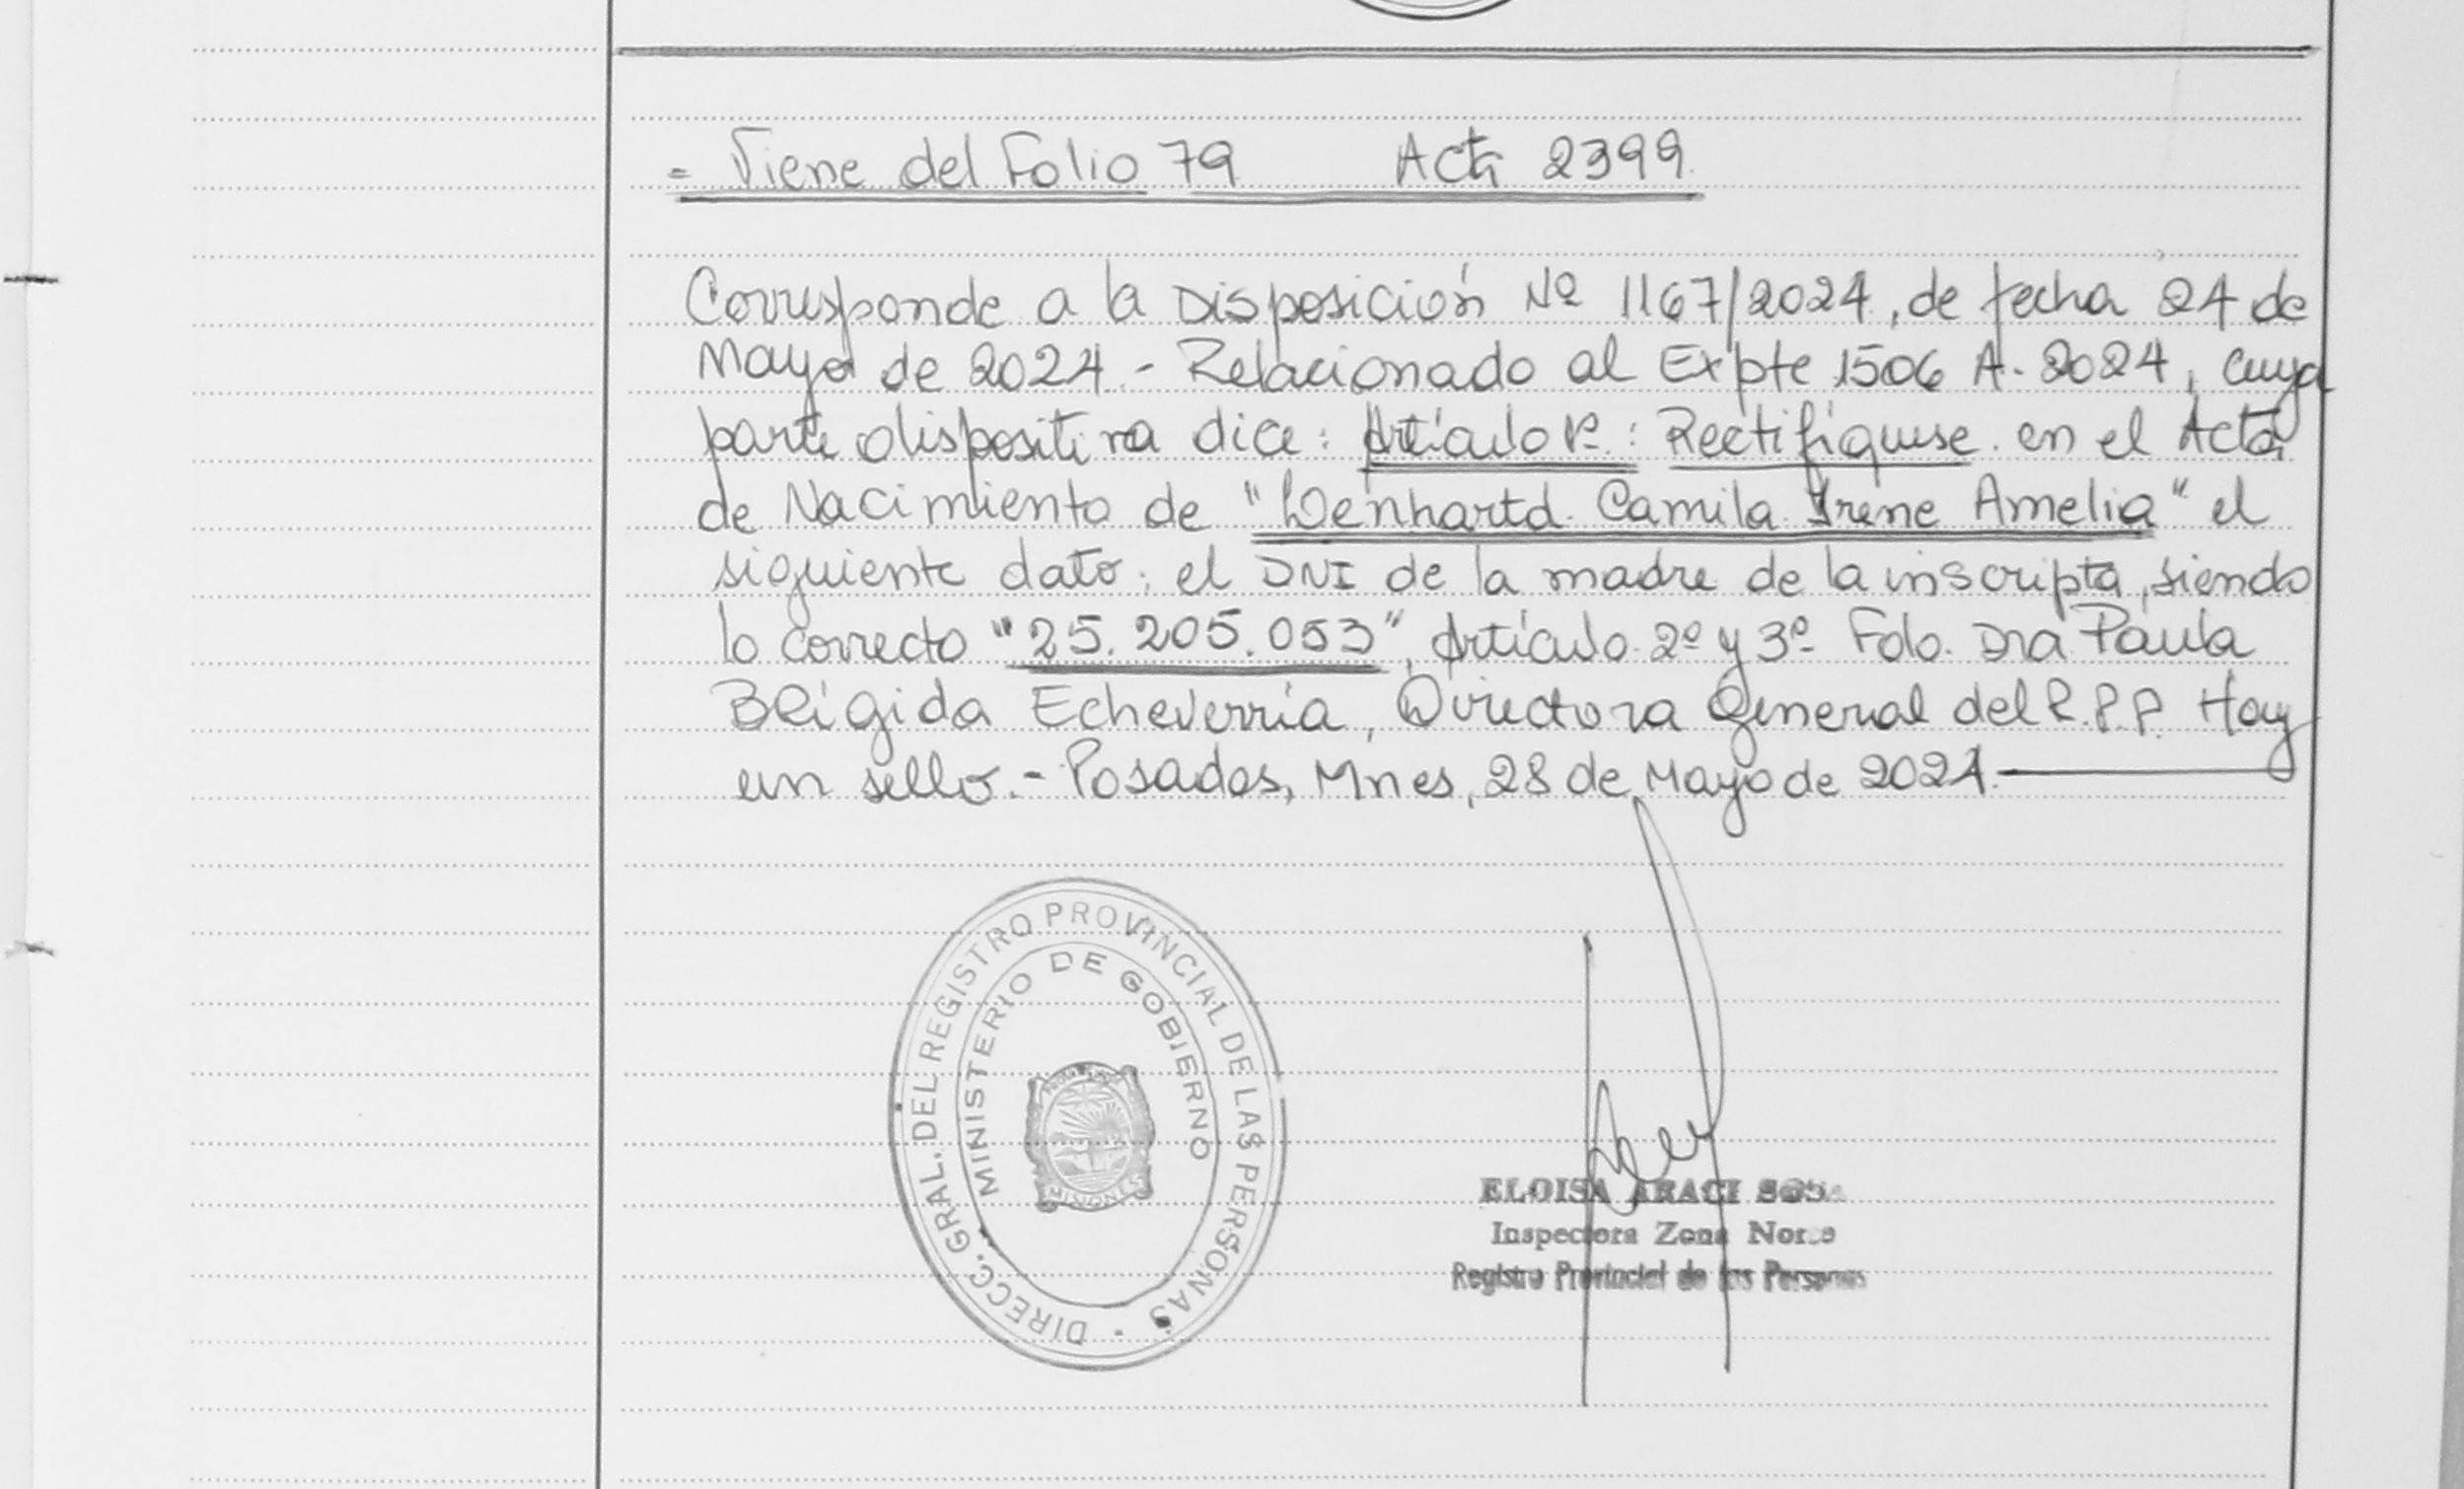 = Viene del Folio 79 Acta 2399.
Corresponde a la Disposición Nº 1167/2024, de fecha 24 de
Mayo de 2024.- Relacionado al Expte 1506 A-2024, cuya
parte dispositiva dice: Artículo 1º: Rectifíquese en el Acta
de Nacimiento de "Wenhartd Camila Irene Amelia" el
siguiente dato: el DNI de la madre de la inscripta, siendo
lo correcto "25.205.053", Artículo 2º y 3º Fdo. Dra Paula
Brígida Echeverría, Directora General del R.P.P. Hay
un sello.- Posadas, Mnes, 28 de Mayo de 2024.
DIRECC. GRAL. DEL REGISTRO PROVINCIAL DE LAS PERSONAS
MINISTERIO DE GOBIERNO
MISIONES
ELOISA ARACI SOSA
Inspectora Zona Norte
Registro Provincial de las Personas